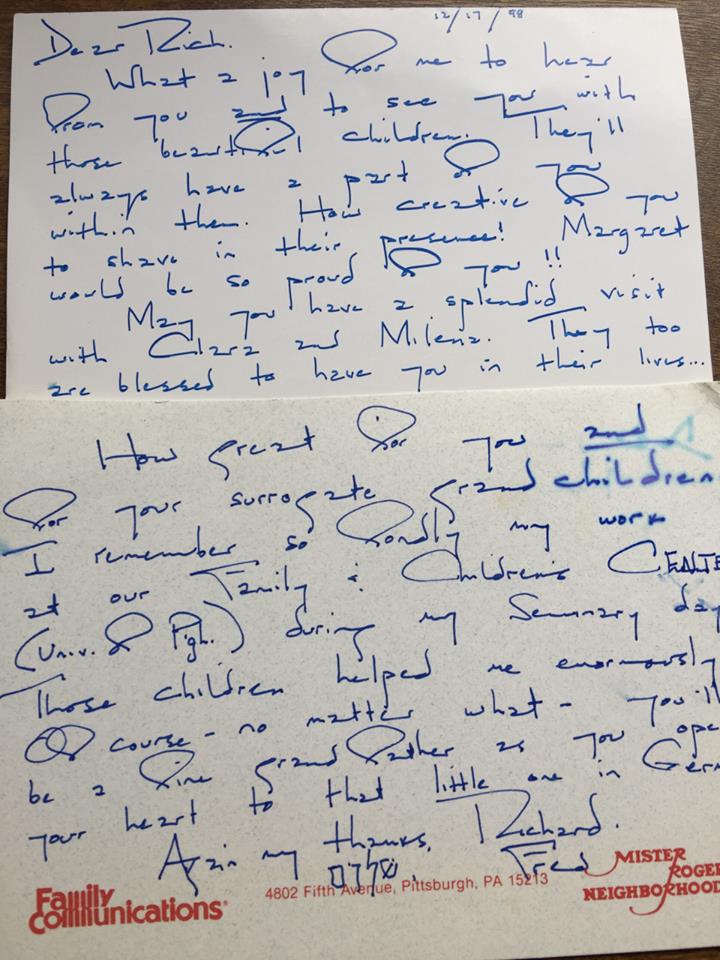 12/17/98
Dear Rich.
What a joy for me to hear
from you and to see you with
those beautiful children. They'll
always have a part of you
within them. How creative of you
to shave in their presence! Margaret
would be so proud of you!!
May you have a splendid visit
with Clara and Milena. They too
are blessed to have you in their lives...
How great for you and
for your surrogate grandchildren
I remember so fondly my work
at our Family & Children's CENTE
(Univ. of Pgh.) during my Seminary day
Those children helped me enormously
Of course - no matter what - you'll
be a fine grandfather as you ope
your heart to that little one in Germ
Again my thanks, Richard.
שלום. Fred
Family
Communications
4802 Fifth Avenue, Pittsburgh, PA 15213
MISTER
ROGER
NEIGHBORHOOD